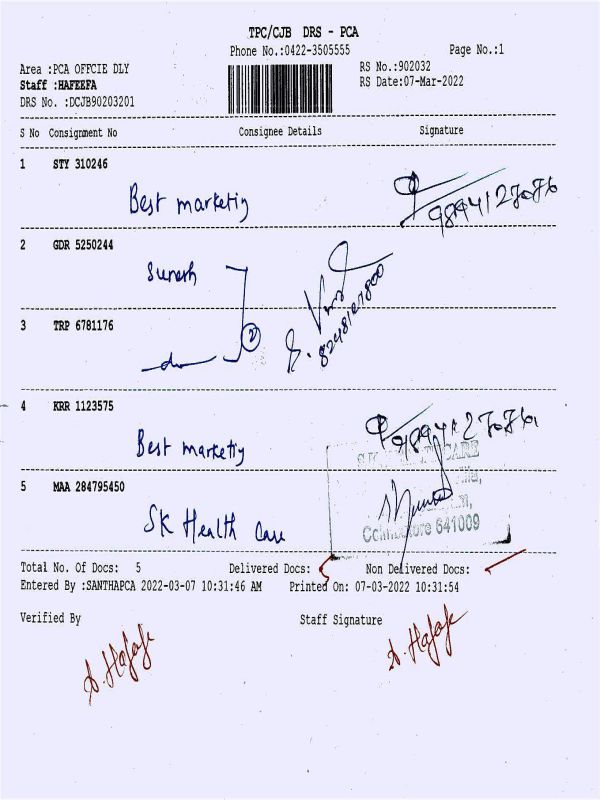 TPC/CJB DRS - PCA
Phone No.:0422-3505555 Page No.:1
Area :PCA OFFCIE DLY RS No.:902032
Staff :HAFEEFA RS Date:07-Mar-2022
DRS No. :DCJB90203201
S No Consignment No Consignee Details Signature
1 STY 310246
Best marketing
2 GDR 5250244
Suresh
3 TRP 6781176
2
do
4 KRR 1123575
Best marketing
5 MAA 284795450
SK Health Care
Coimbatore 641009
Total No. Of Docs: 5 Delivered Docs: 5 Non Delivered Docs:
Entered By :SANTHAPCA 2022-03-07 10:31:46 AM Printed On: 07-03-2022 10:31:54
Verified By Staff Signature